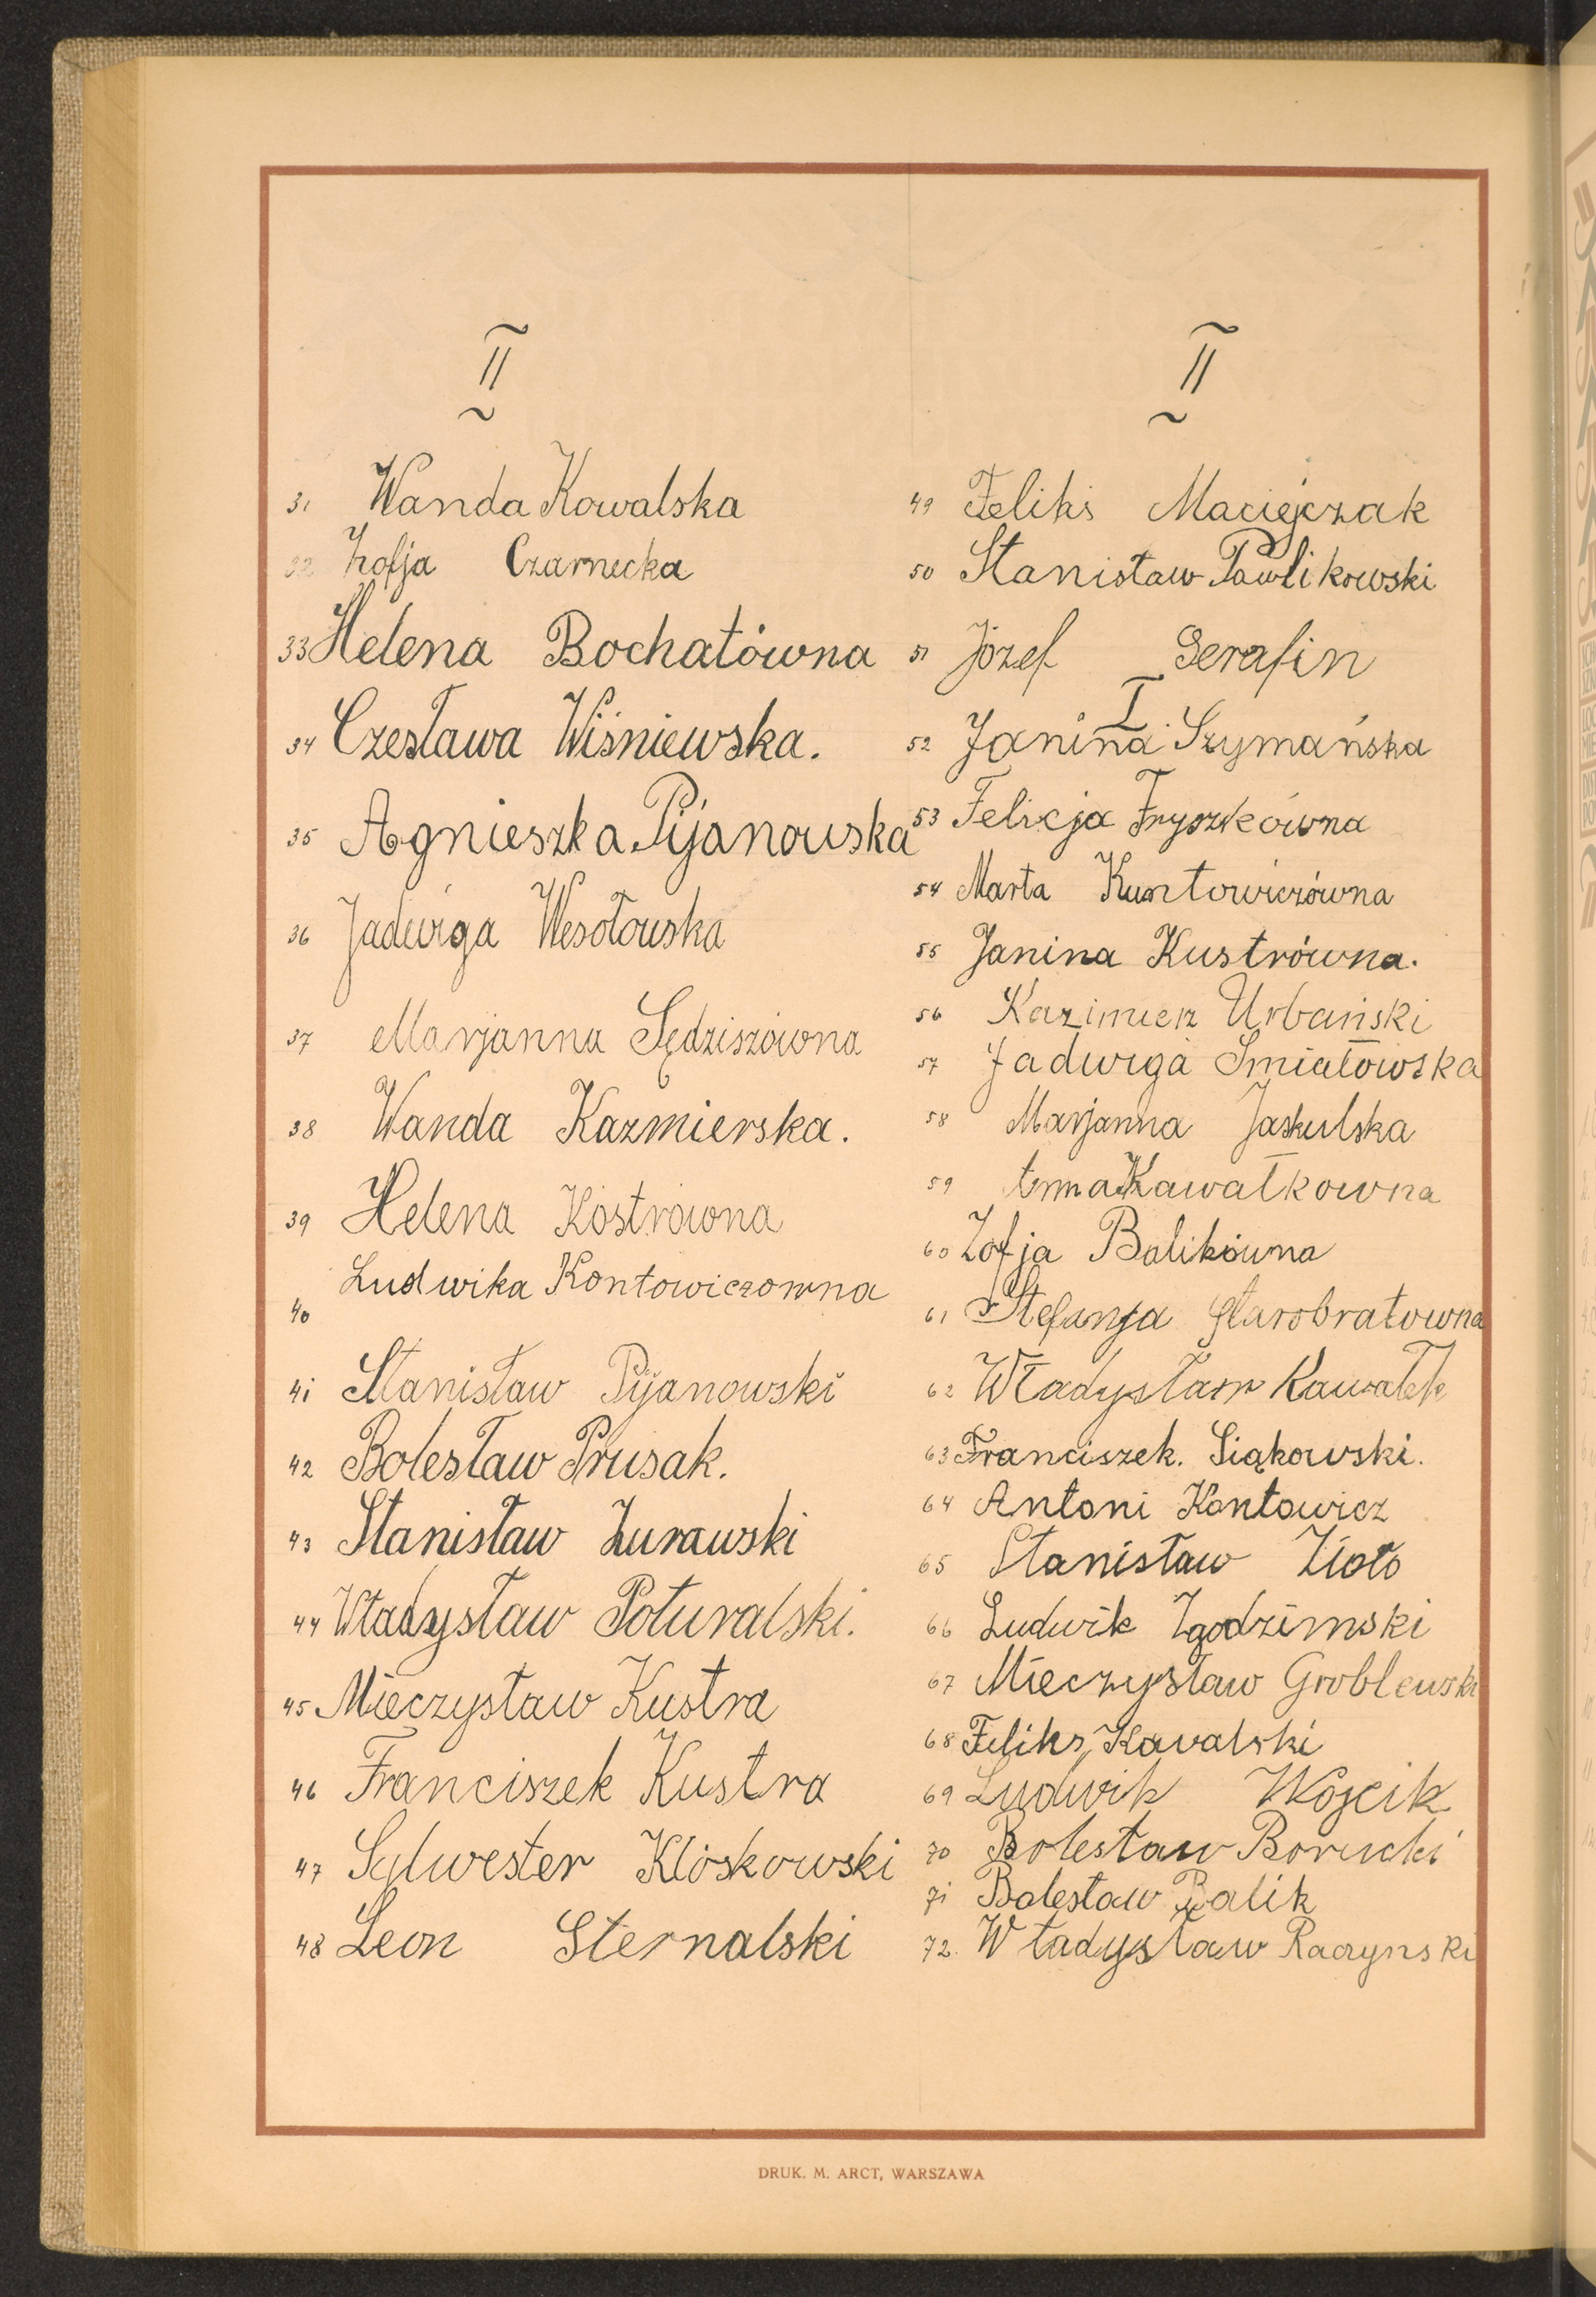 II
31 Wanda Kowalska
32 Zofja Czarnecka
33 Helena Bochatówna
34 Czesława Wiśniewska.
35 Agnieszka Pijanowska
36 Jadwiga Wesołowska
37 Marjanna Sędziszówna
38 Wanda Kazmierska.
39 Helena Kostrówna
40 Ludwika Kontowiczowna
41 Stanisław Pijanowski
42 Bolesław Prusak.
43 Stanisław Żurawski
44 Władysław Poturalski.
45 Mieczysław Kustra
46 Franciszek Kustra
47 Sylwester Kłóskowski
48 Leon Sternalski
II
49 Feliks Maciejczak
50 Stanisław Pawlikowski
51 Józef Serafin
I
52 Janina Szymańska
53 Felicja Fryszkówna
54 Marta Kuntowiczówna
55 Janina Kustrówna.
56 Kazimierz Urbański
57 Jadwiga Smiałowska
58 Marjanna Jaskulska
59 Anna Kawałkowna
60 Zofja Balikówna
61 Stefanja Starobratowna
62 Władysław Kawałek
63 Franciszek. Siąkowski.
64 Antoni Kontowicz
65 Stanisław Zioło
66 Ludwik Zgodzimski
67 Mieczysław Groblewski
68 Feliks Kowalski
69 Ludwik Wójcik
70 Bolesław Borucki
71 Bolesław Balik
72. Władysław Raczynski
DRUK. M. ARCT, WARSZAWA